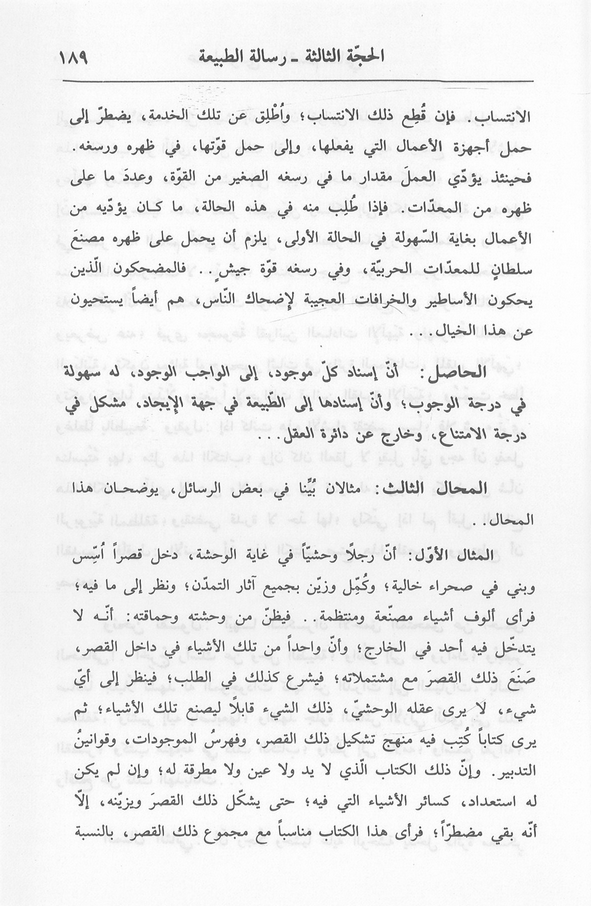 الحجّة الثالثة - رسالة الطبيعة ١٨٩
الانتساب. فإن قُطِع ذلك الانتساب؛ وأُطْلِق عن تلك الخدمة، يضطرّ إلى
حمل أجهزة الأعمال التي يفعلها، وإلى حمل قوّتها، في ظهره ورسغه.
فحينئذ يؤدّي العملَ مقدار ما في رسغه الصغير من القوّة، وعددَ ما على
ظهره من المعدّات. فإذا طُلِب منه في هذه الحالة، ما كـان يؤدّيه من
الأعمال بغاية السّهولة في الحالة الأولى، يلزم أن يحمل على ظهره مصنعَ
سلطانٍ للمعدّات الحربيّة، وفي رسغه قوّة جيشٍ.. فالمضحكون الّذين
يحكون الأساطير والخرافات العجيبة لإضحاك النّاس، هم أيضاً يستحيون
عن هذا الخيال...
الحاصل: أنّ إسناد كلّ موجود، إلى الواجب الوجود، له سهولة
في درجة الوجوب؛ وأنّ إسنادها إلى الطّبيعة في جهة الإيجاد، مشكل في
درجة الامتناع، وخارج عن دائرة العقل...
المحال الثالث: مثالان بُيِّنا في بعض الرسائل، يوضّحـان هذا
المحال..
المثال الأوّل: أنّ رجلاً وحشيّاً في غاية الوحشة، دخل قصراً أُسِّس
وبني في صحراء خالية؛ وكُمِّل وزيّن بجميع آثار التمدّن؛ ونظر إلى ما فيه؛
فرأى ألوف أشياء مصنّعة ومنتظمة.. فيظنّ من وحشته وحماقته: أنّـه لا
يتدخّل فيه أحد في الخارج؛ وأنّ واحداً من تلك الأشياء في داخل القصر،
صَنَعَ ذلك القصرَ مع مشتملاته؛ فيشرع كذلك في الطلب؛ فينظر إلى أيّ
شيء، لا يرى عقله الوحشيّ، ذلك الشيء قابلاً ليصنع تلك الأشياء؛ ثم
يرى كتاباً كُتِب فيه منهج تشكيل ذلك القصر، وفهرسُ الموجودات، وقوانينُ
التدبير. وإنّ ذلك الكتاب الّذي لا يد ولا عين ولا مطرقة له؛ وإن لم يكن
له استعداد، كسائر الأشياء التي فيه؛ حتى يشكّل ذلك القصرَ ويزيّنه، إلّا
أنّه بقي مضطرّاً؛ فرأى هذا الكتاب مناسباً مع مجموع ذلك القصر، بالنسبة